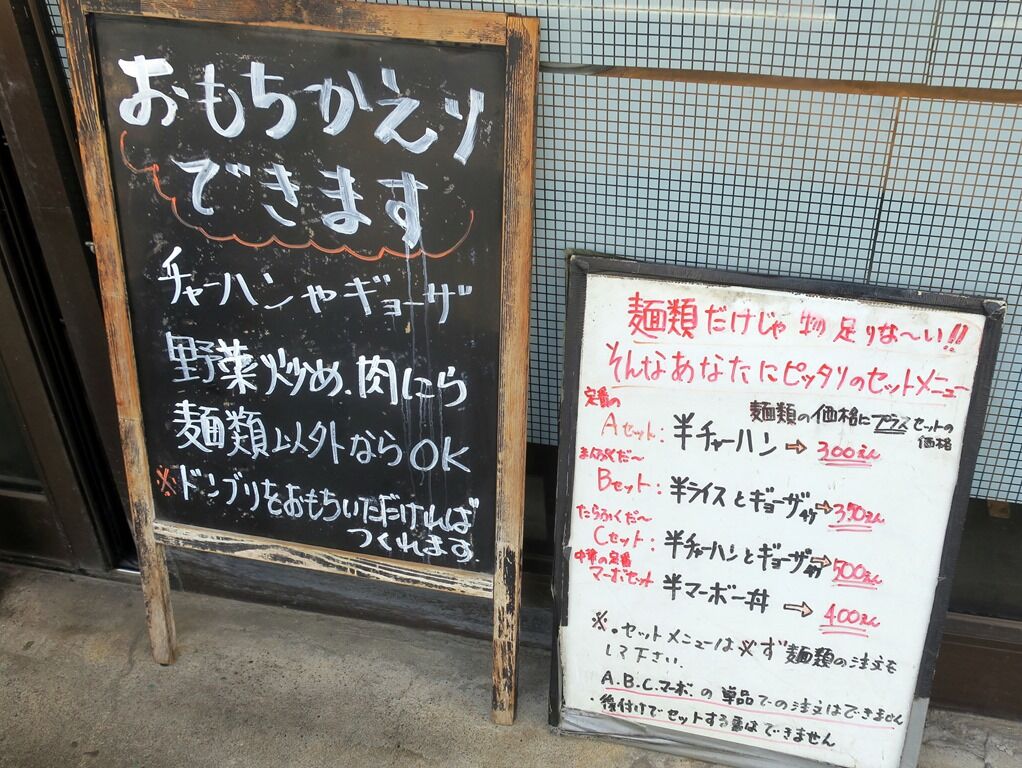 おもちかえり
できます
チャーハンやギョーザ
野菜炒め、肉にら
麺類以外ならOK
※ドンブリをおもちいただければ
つくれます
麺類だけじゃ物足りな〜い!!
そんなあなたにピッタリのセットメニュー
麺類の価格にプラスセットの
価格
定番の
Aセット: 半チャーハン→ 300えん
まんぷくだ〜
Bセット: 半ライスとギョーザ→350えん
たらふくだ〜
Cセット: 半チャーハンとギョーザ→500えん
中華の定番
マーボセット 半マーボー丼 ⇨ 400えん
※。セットメニューは必ず麺類の注文を
して下さい.
A.B.C.マーボ.の単品での注文はできません
・後付けでセットする事はできません